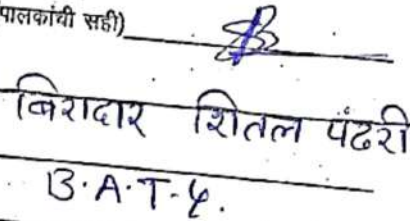 पालकांची सही)
बिरादार शितल पंढरी
B.A.T-4.